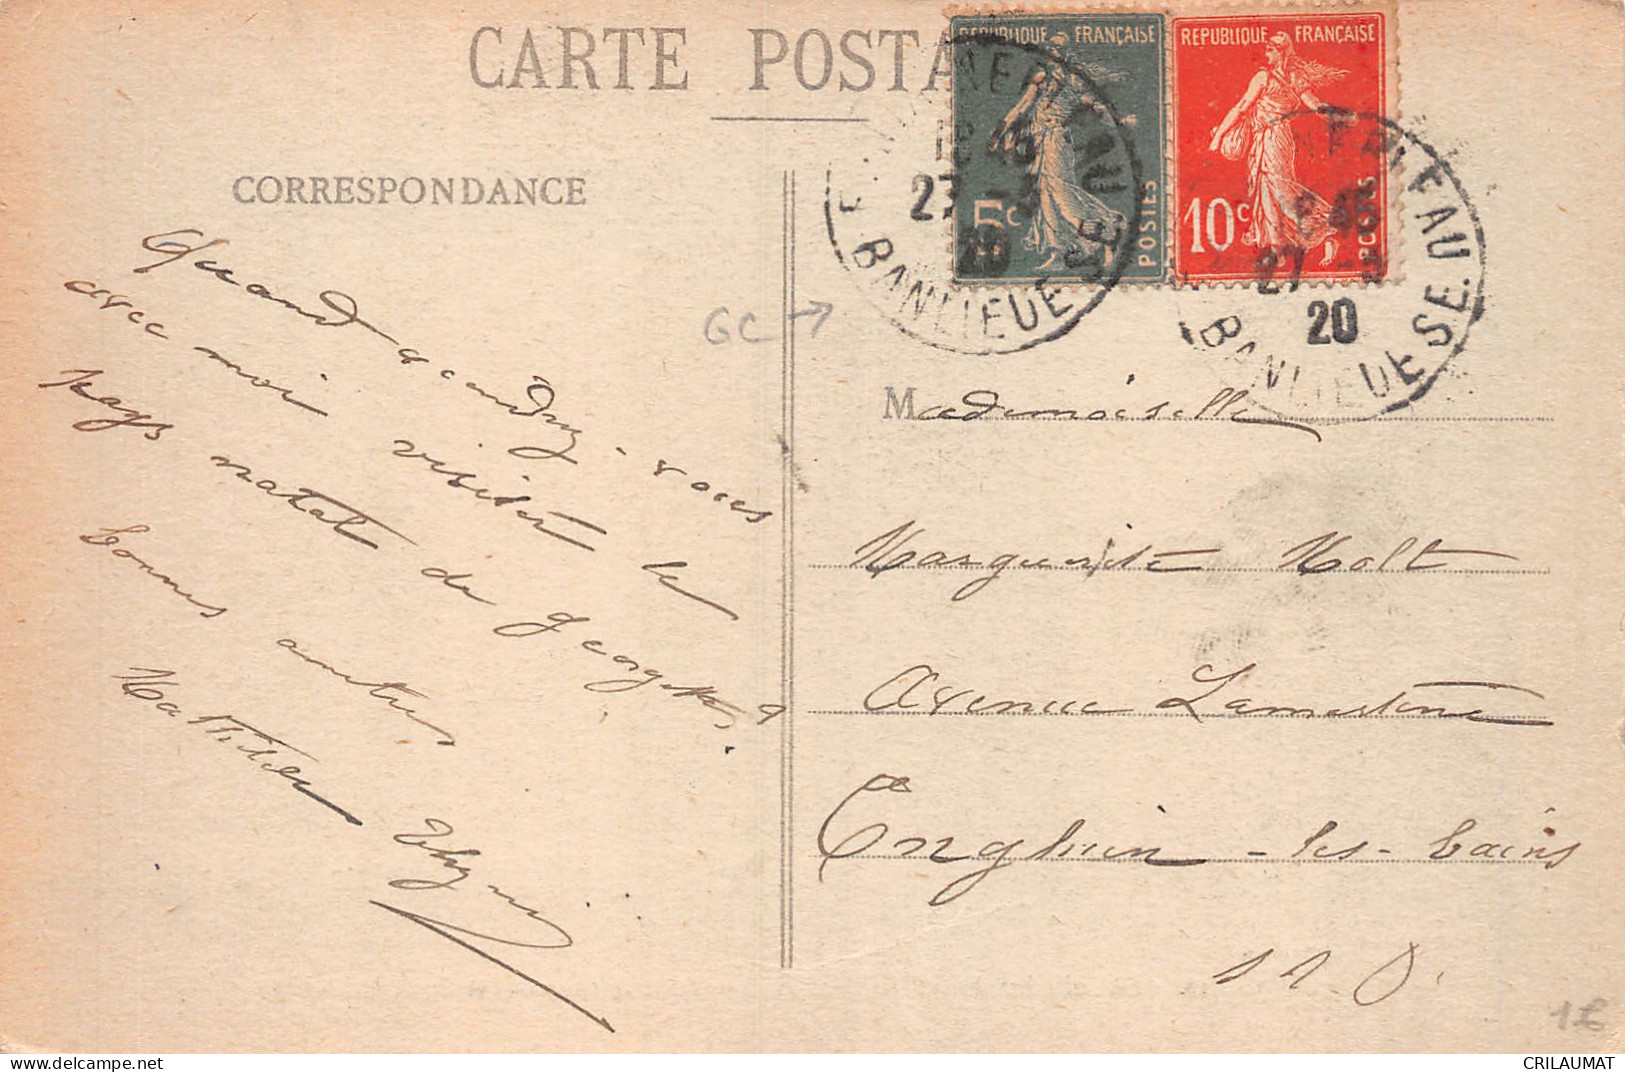 CARTE POSTA
RÉPUBLIQUE FRANÇAISE
5c
POSTES
RÉPUBLIQUE FRANÇAISE
10c
POSTES
18 45
27
20
BANLIEUE
EAU
18 45
27
20
BANLIEUE SE.
CORRESPONDANCE
GC →
Quand viendrez-vous
avec moi visiter le
pays natal de Georgette ?
bonnes
Mademoiselle
Marguerite Molt
Avenue Lamartine
Enghien-les-bains
1€
CRILAUMAT